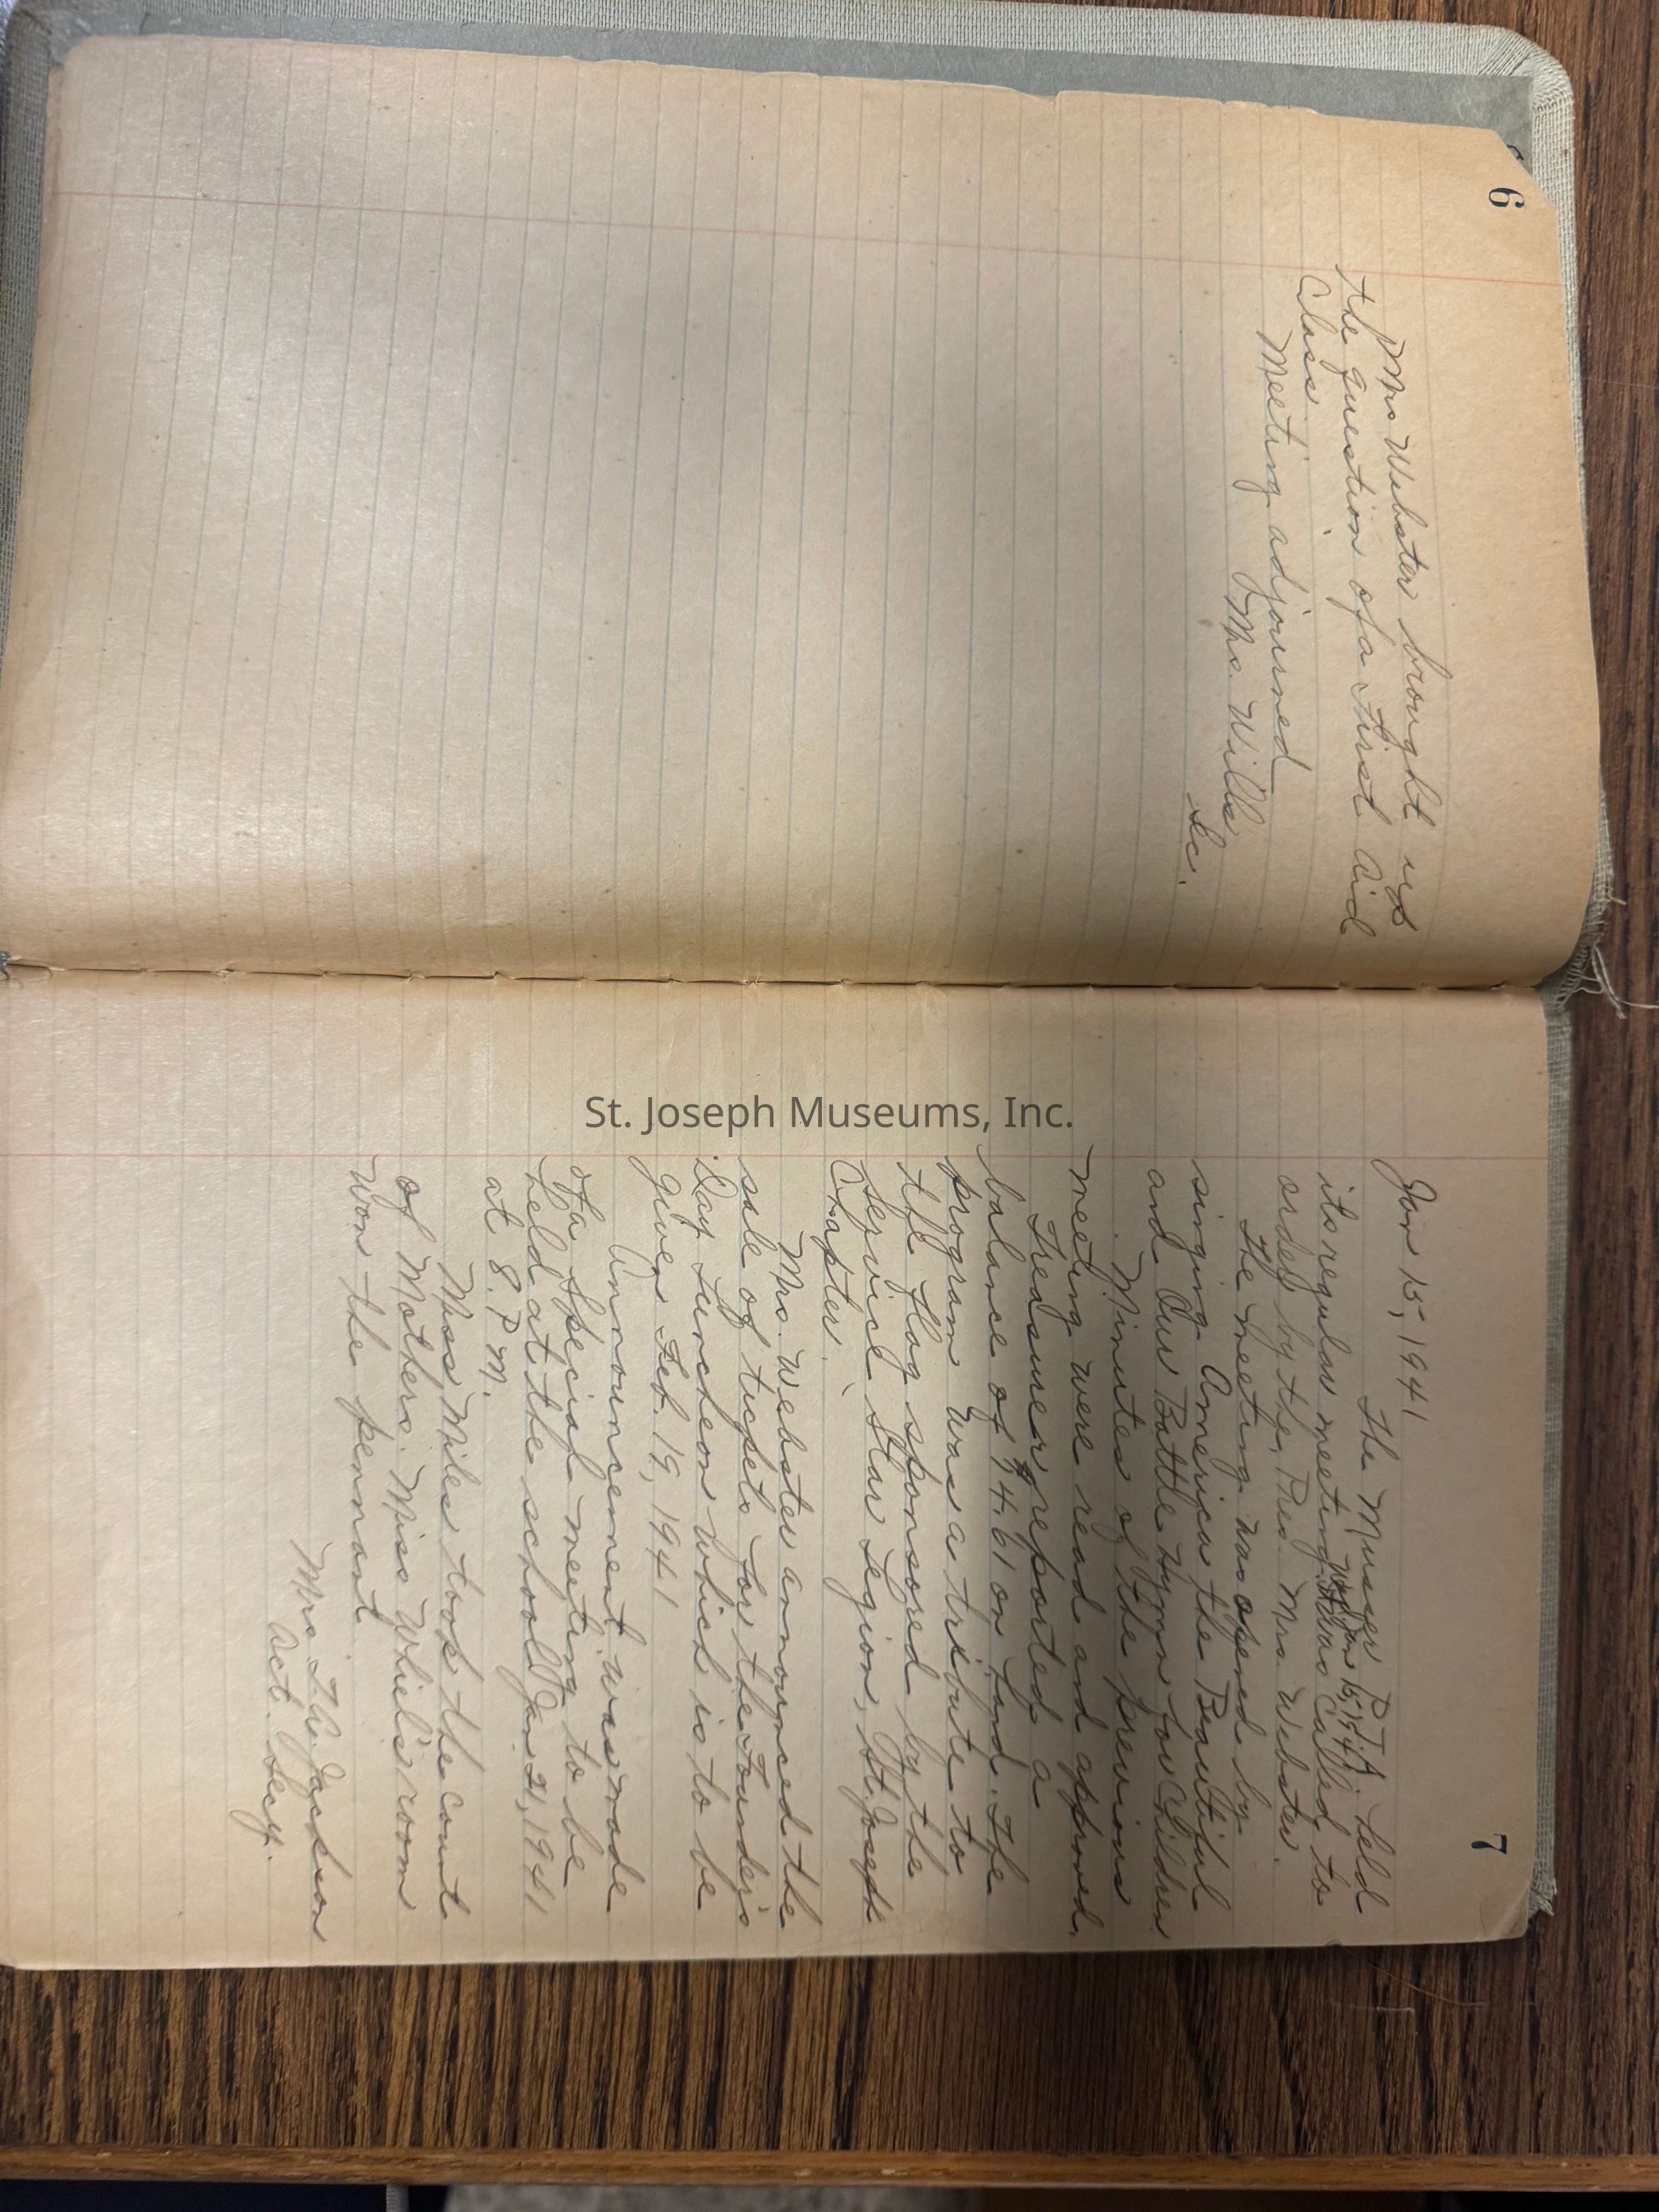 6
Mrs Webster brought up
the question of a First Aid
Class.
Meeting adjourned
Mrs. Wills
Sec.
7
Jan 15, 1941
The Musser P.T.A. held
its regular meeting Wed Jan 15, 1941.
Called to
order by the Pres. Mrs. Webster.
The meeting was opened by
singing America the Beautiful
and Our Battle Hymn for Children
Minutes of the previous
meeting were read and approved.
Treasurer reported a
balance of $4.61 on hand. The
program was a tribute to
the flag sponsored by the
Service Star Legion, St. Joseph
Chapter.
Mrs. Webster announced the
sale of tickets for the Founder's
Day Luncheon which is to be
given Feb. 19, 1941
Announcement was made
of a special meeting to be
held at the school Jan 21, 1941
at 8. P. M.
Miss Miles took the count
of Mothers. Miss room
won the pennant
Mrs. Jackson
Act. Secy.
St. Joseph Museums, Inc.